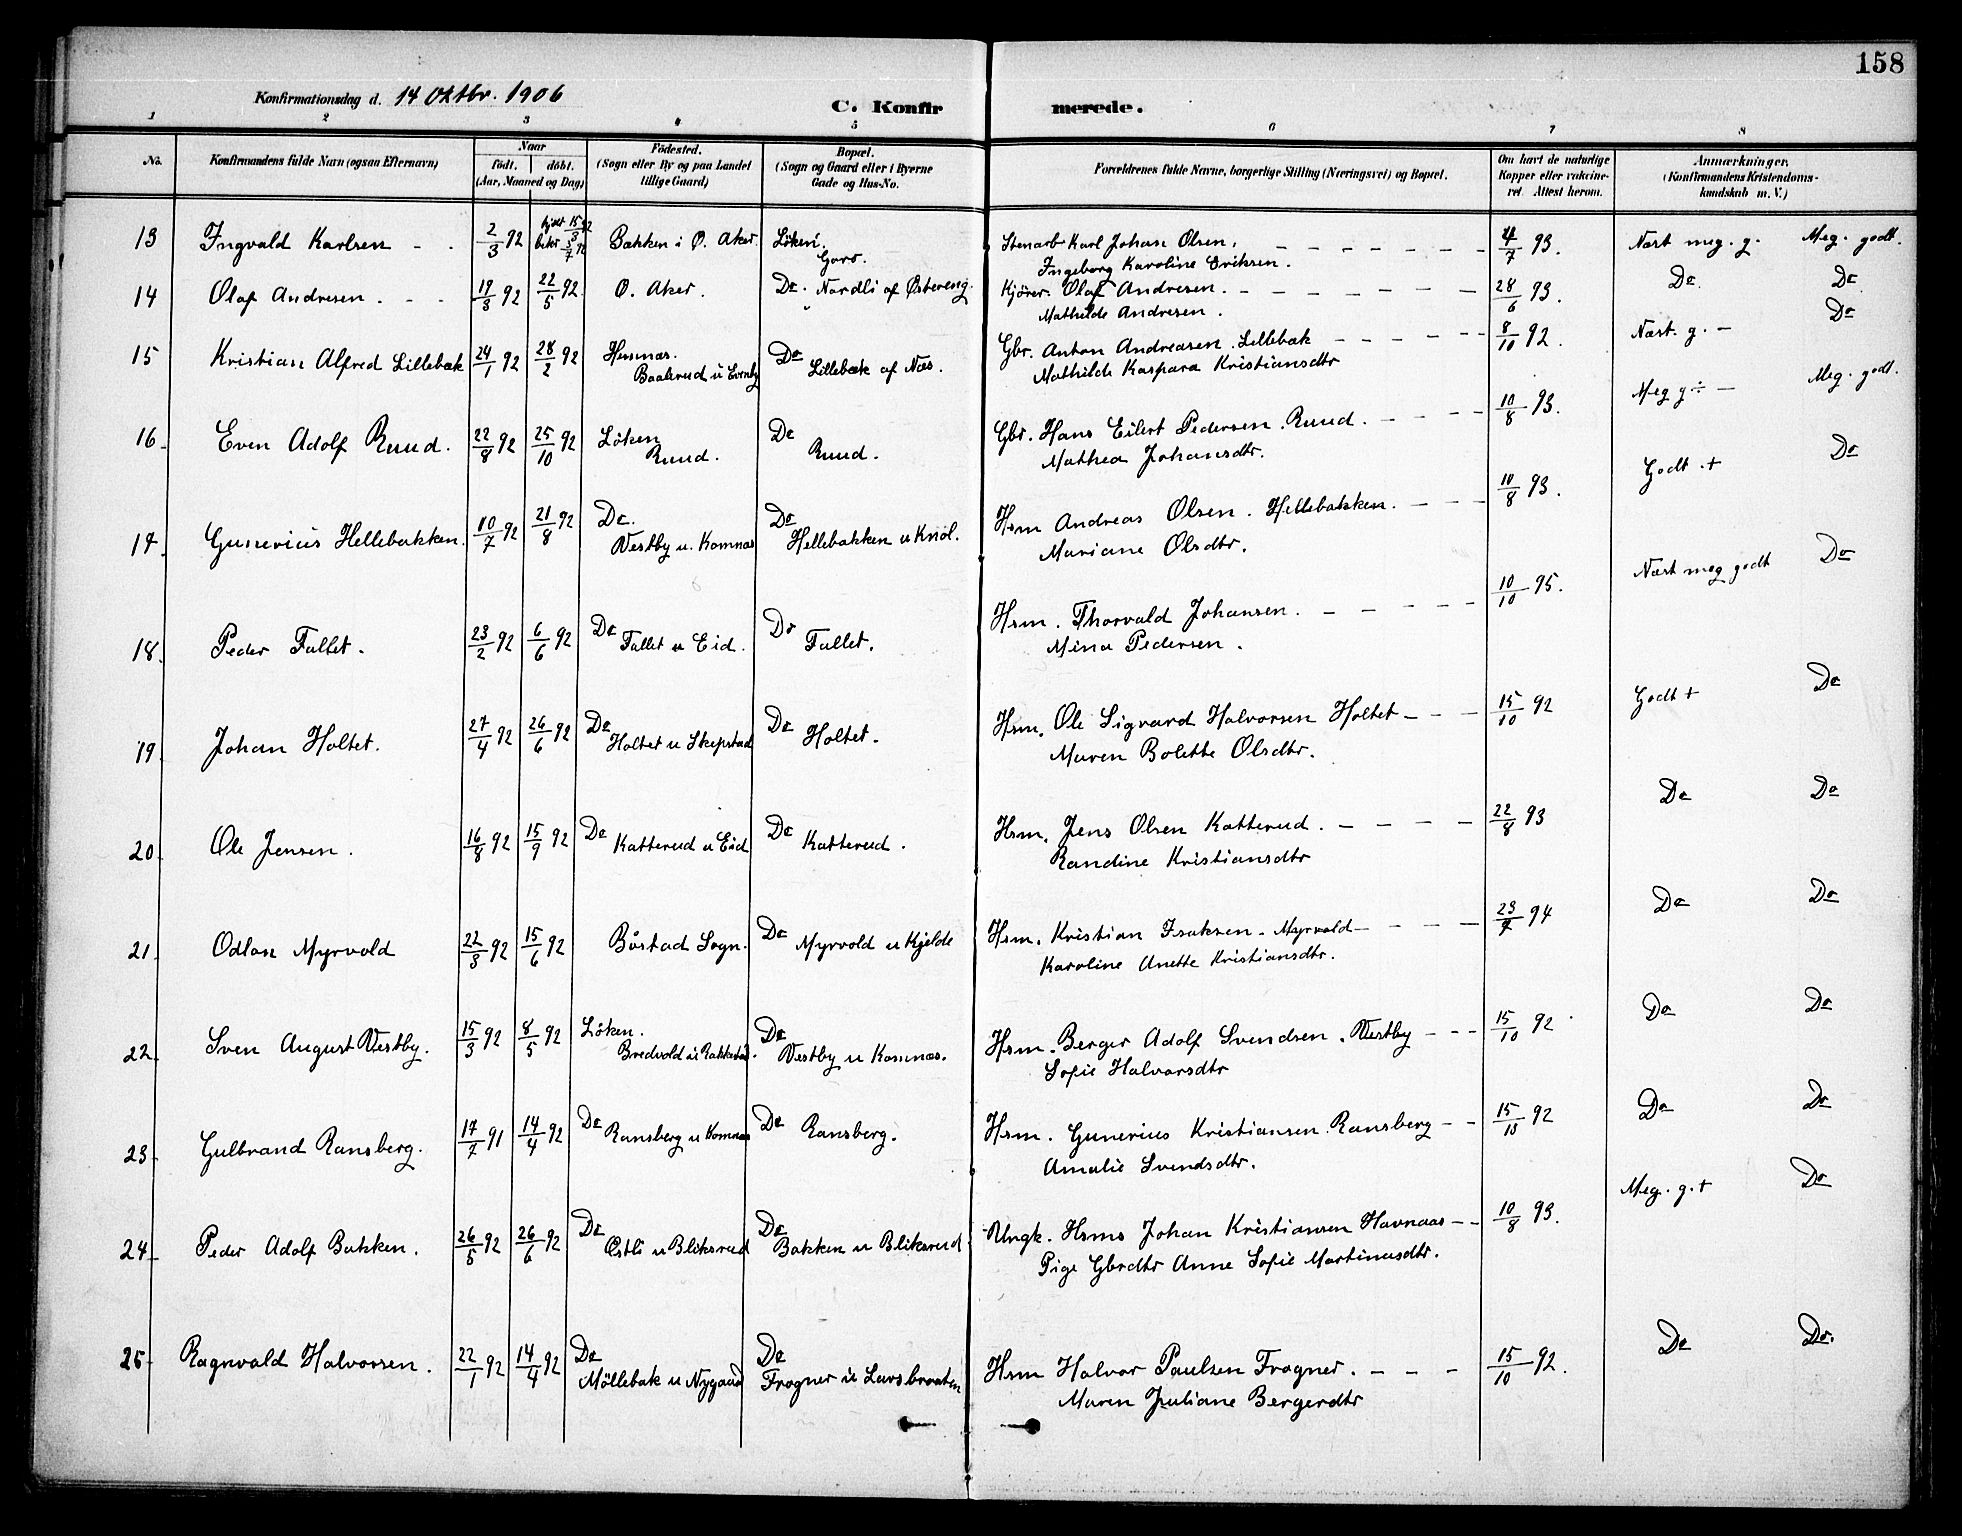 158
Konfirmationsdag d. 14 Oktbr. 1906
C. Konfir merede.
1 2 3 4 5 6 7 8
No. Konfirmandens fulde Navn (ogsaa Efternavn) Naar født. døbt. (Aar, Maaned og Dag) Fødested. (Sogn eller By og paa Landet tillige Gaard) Bopæl. (Sogn og Gaard eller i Byerne Gade og Hus-No. Forældrenes fulde Navne, borgerlige Stilling (Næringsvei) og Bopæl. Om havt de naturlige Kopper eller vakcineret. Attest herom. Anmærkninger. (Konfirmandens Kristendomskundskab m. V.)
13 Ingvald Karlsen - - 2/3 92 hjdt 15/3 92 Bakken i Ø. Aker. Löken. Stenarb Karl Johan Olsen. 4/7 93. Næst meg. g. Meg. godt.
bekr 3/7 92 Goro. Ingeborg Karoline Eriksen.
14 Olaf Andresen. - - 19/3 92 22/5 92. Ö. Aker. Do. Nordli af Østereng. Kjörer. Olaf Andresen. 28/6 93. Do. Do
Mathilde Andresen.
15 Kristian Alfred Lillebæk 24/1 92 28/2 92 Hemnæs. Do Gbr. Anton Andreasen Lillebæk 8/10 92. Næst. g. - Do
Baalerud u Lillebæk af Næs. Mathilde Kaspara Kristiansdtr
16. Even Adolf Ruud. 22/8 92 25/10 92 Löken Do Gbr. Hans Eilert Pedersen Ruud. 10/8 93. Meg g ÷ - Meg. godt.
Ruud. Ruud. Mathea Johansdtr.
17. Gunerius Hellebækken. 10/7 92 21/8 92 Do. Do Hsm Andreas Olsen. Hellebækken. 10/8 93. Godt + Do
Vestby u. Komnæs Hellebækken u Knol. Mariane Olsdtr.
18. Peder Fallet. 23/2 92 6/6 92 Do Fallet u Eid. Do Fallet. Hsm. Thorvald Johansen. 10/10 95. Næst meg godt Do
Mina Pedersen.
19. Johan Holtet. 27/4 92 26/6 92 Do Holtet u Skepstad Do Holtet. Hsm. Ole Sigvard Halvorsen Holtet 15/10 92 Godt + Do
Maren Bolette Olsdtr.
20. Ole Jensen. 16/8 92 15/9 92 Do Katterud u Eid Do Katterud. Hsm. Jens Olsen Katterud. 22/8 93 Do Do
Randine Kristiansdtr
21. Odlon Myrvold 22/3 92 15/6 92 Båstad Sogn. Do Myrvold u Kjelde Hsm. Kristian Isaksen. Myrvold 23/7 94 Do Do
Karoline Anette Kristiansdtr.
22. Sven August Vestby. 15/3 92 8/5 92 Löken. Do Hsm. Berger Adolf Svendsen. Vestby 15/10 92 Do Do
Bredvold u Rakkestad. Vestby u Komnæs. Sofie Halvorsdtr
23. Gulbrand Ransberg. 17/7 91 14/4 92 Do Ransberg u Komnæs Do Ransberg. Hsm. Gunerius Kristiansen Ransberg 15/10 92 Do Do
Amalie Svendsdtr.
24. Peder Adolf Bakken. 26/5 92 26/6 92 Do Østli u Bliksrud Do Bakken u Bliksrud Ungk. Hsms Johan Kristiansen Havnaas 10/8 93. Meg. g. + Do
Pige Gbrdtr Anne Sofie Martinusdtr.
25. Ragnvald Halvorsen. 22/1 92 14/4 92 Do Do Hsm Halvor Paulsen Frogner. 15/10 92. Do Do.
Möllebæk u Nygaard Frogner u Larsbraaten Maren Juliane Bergerdtr